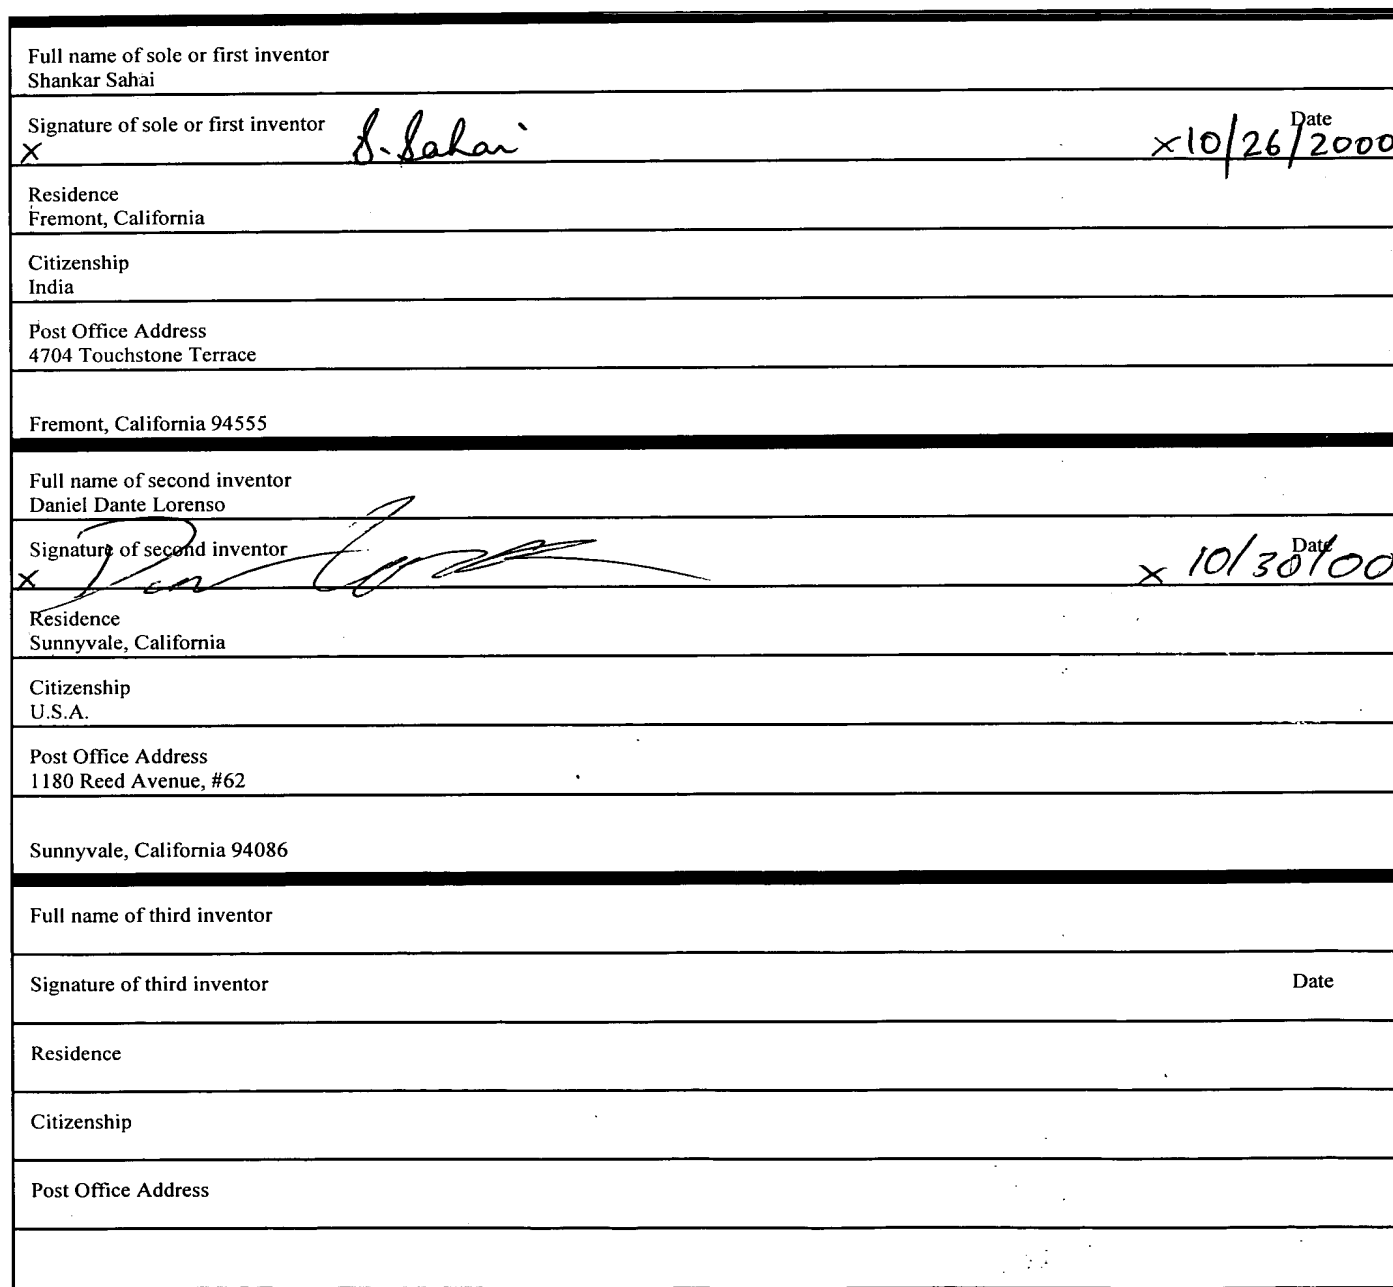 Full name of sole or first inventor
Shankar Sahai
Signature of sole or first inventor
Date
X S. Sahai x 10/26/2000
Residence
Fremont, California
Citizenship
India
Post Office Address
4704 Touchstone Terrace
Fremont, California 94555
Full name of second inventor
Daniel Dante Lorenso
Signature of second inventor
Date
x x 10/30/00
Residence
Sunnyvale, California
Citizenship
U.S.A.
Post Office Address
1180 Reed Avenue, #62
Sunnyvale, California 94086
Full name of third inventor
Signature of third inventor Date
Residence
Citizenship
Post Office Address